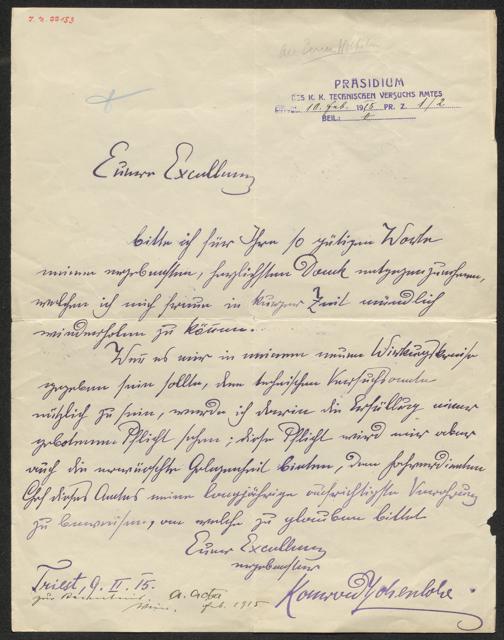 I. N. 22153
PRÄSIDIUM
DES K. K. TECHNISCHEN VERSUCHS AMTES
10. Feb. 1915 PR. Z. 1/2
BEIL: 0
Euere Excellenz
bitte ich für Ihre so gütigen Worte
meinen ergebensten, herzlichsten Dank entgegenzunehmen,
welchen ich mich freue in kurzer Zeit mündlich
wiederholen zu können.
Wen es mir in meinem neuen Wirkungskreise
gegeben sein sollte, dem technischen Versuchsamte
nützlich zu sein, werde ich darin die Erfüllung einer
gebotenen Pflicht sehen; diese Pflicht wird mir aber
auch die erwünschte Gelegenheit bieten, dem hochverdienten
Chef dieses Amtes meine langjährige aufrichtigste Verehrung
zu beweisen, an welche zu glauben bittet
Euerer Excellenz
ergebenster
Konrad Hohenlohe
Triest, 9. II. 15.
zur Kenntnis. a. acta
Wien, Feb. 1915